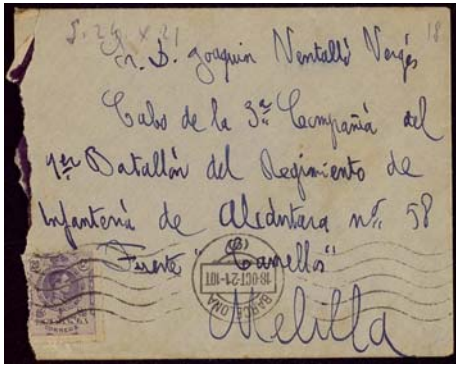 S. 24. X. 21
18
Sr. D. Joaquin Ventalló Vergés
Cabo de la 3ª Compañia del
1er Batallón del Regimiento de
Infanteria de Alcántara nº 58
Fuerte "Canellos"
Melilla
BARCELONA
18·OCT·21·10T
(3)
CORREOS